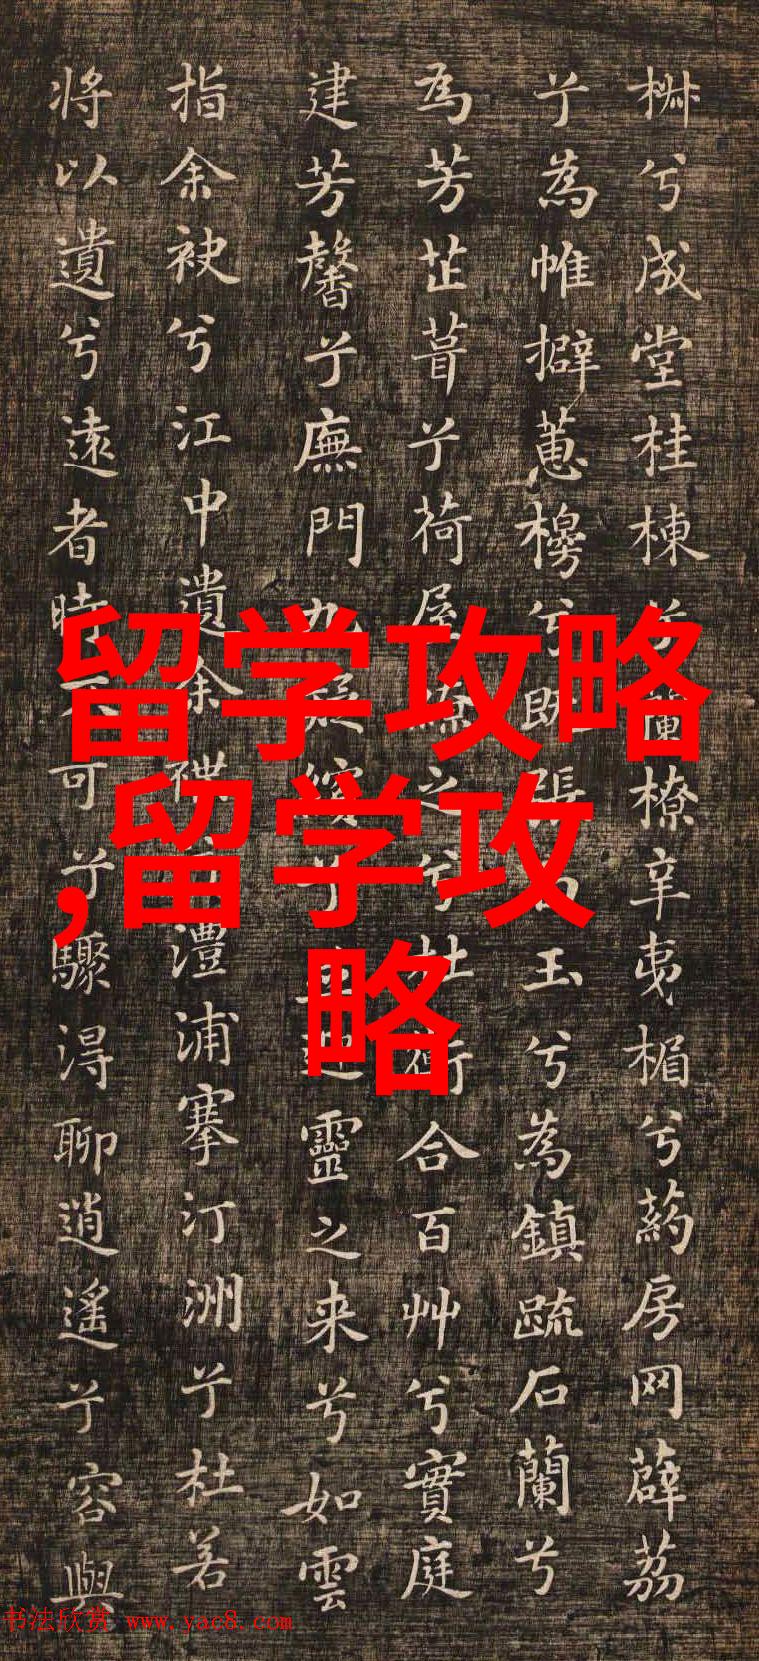 椒兮成堂桂棟兮蘭橑辛夷楣兮葯房网薜荔
兮為帷擗蕙櫋兮既張白玉兮為鎮疏石蘭兮
為芳芷葺兮荷屋繚之兮杜衡合百艸兮實庭
建芳馨兮廡門九疑繽兮並迎靈之来兮如雲
指余袂兮江中遺余褋兮澧浦搴汀洲兮杜若
将以遺兮遠者時不可兮驟得聊逍遙兮容與
留学攻略
,留学攻
略
书法欣赏 www.yac8.com